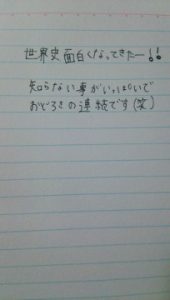 世界史面白くなってきたー!!
知らない事がいっぱいで
おどろきの連続です(笑)